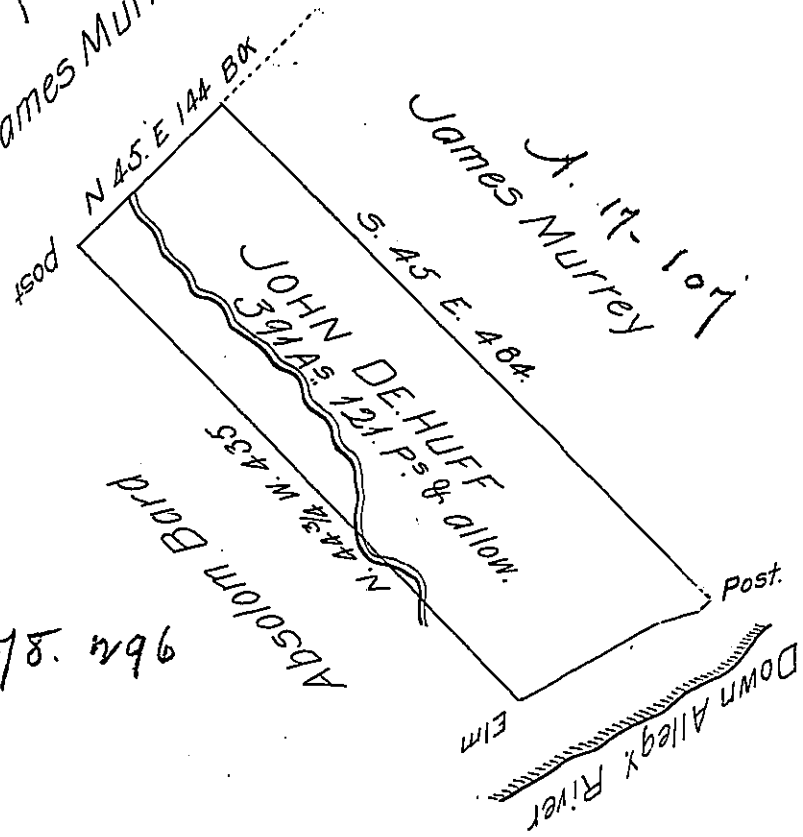 James Mur
N 45. E 144
post
A. 17-107
James Murrey
S. 45 E. 484.
JOHN DE.HUFF
391 As. 121. Ps & allow.
N. 44¾ W. 435
Absolom Bard
78. 296
Post.
Elm
Down Allegy. River